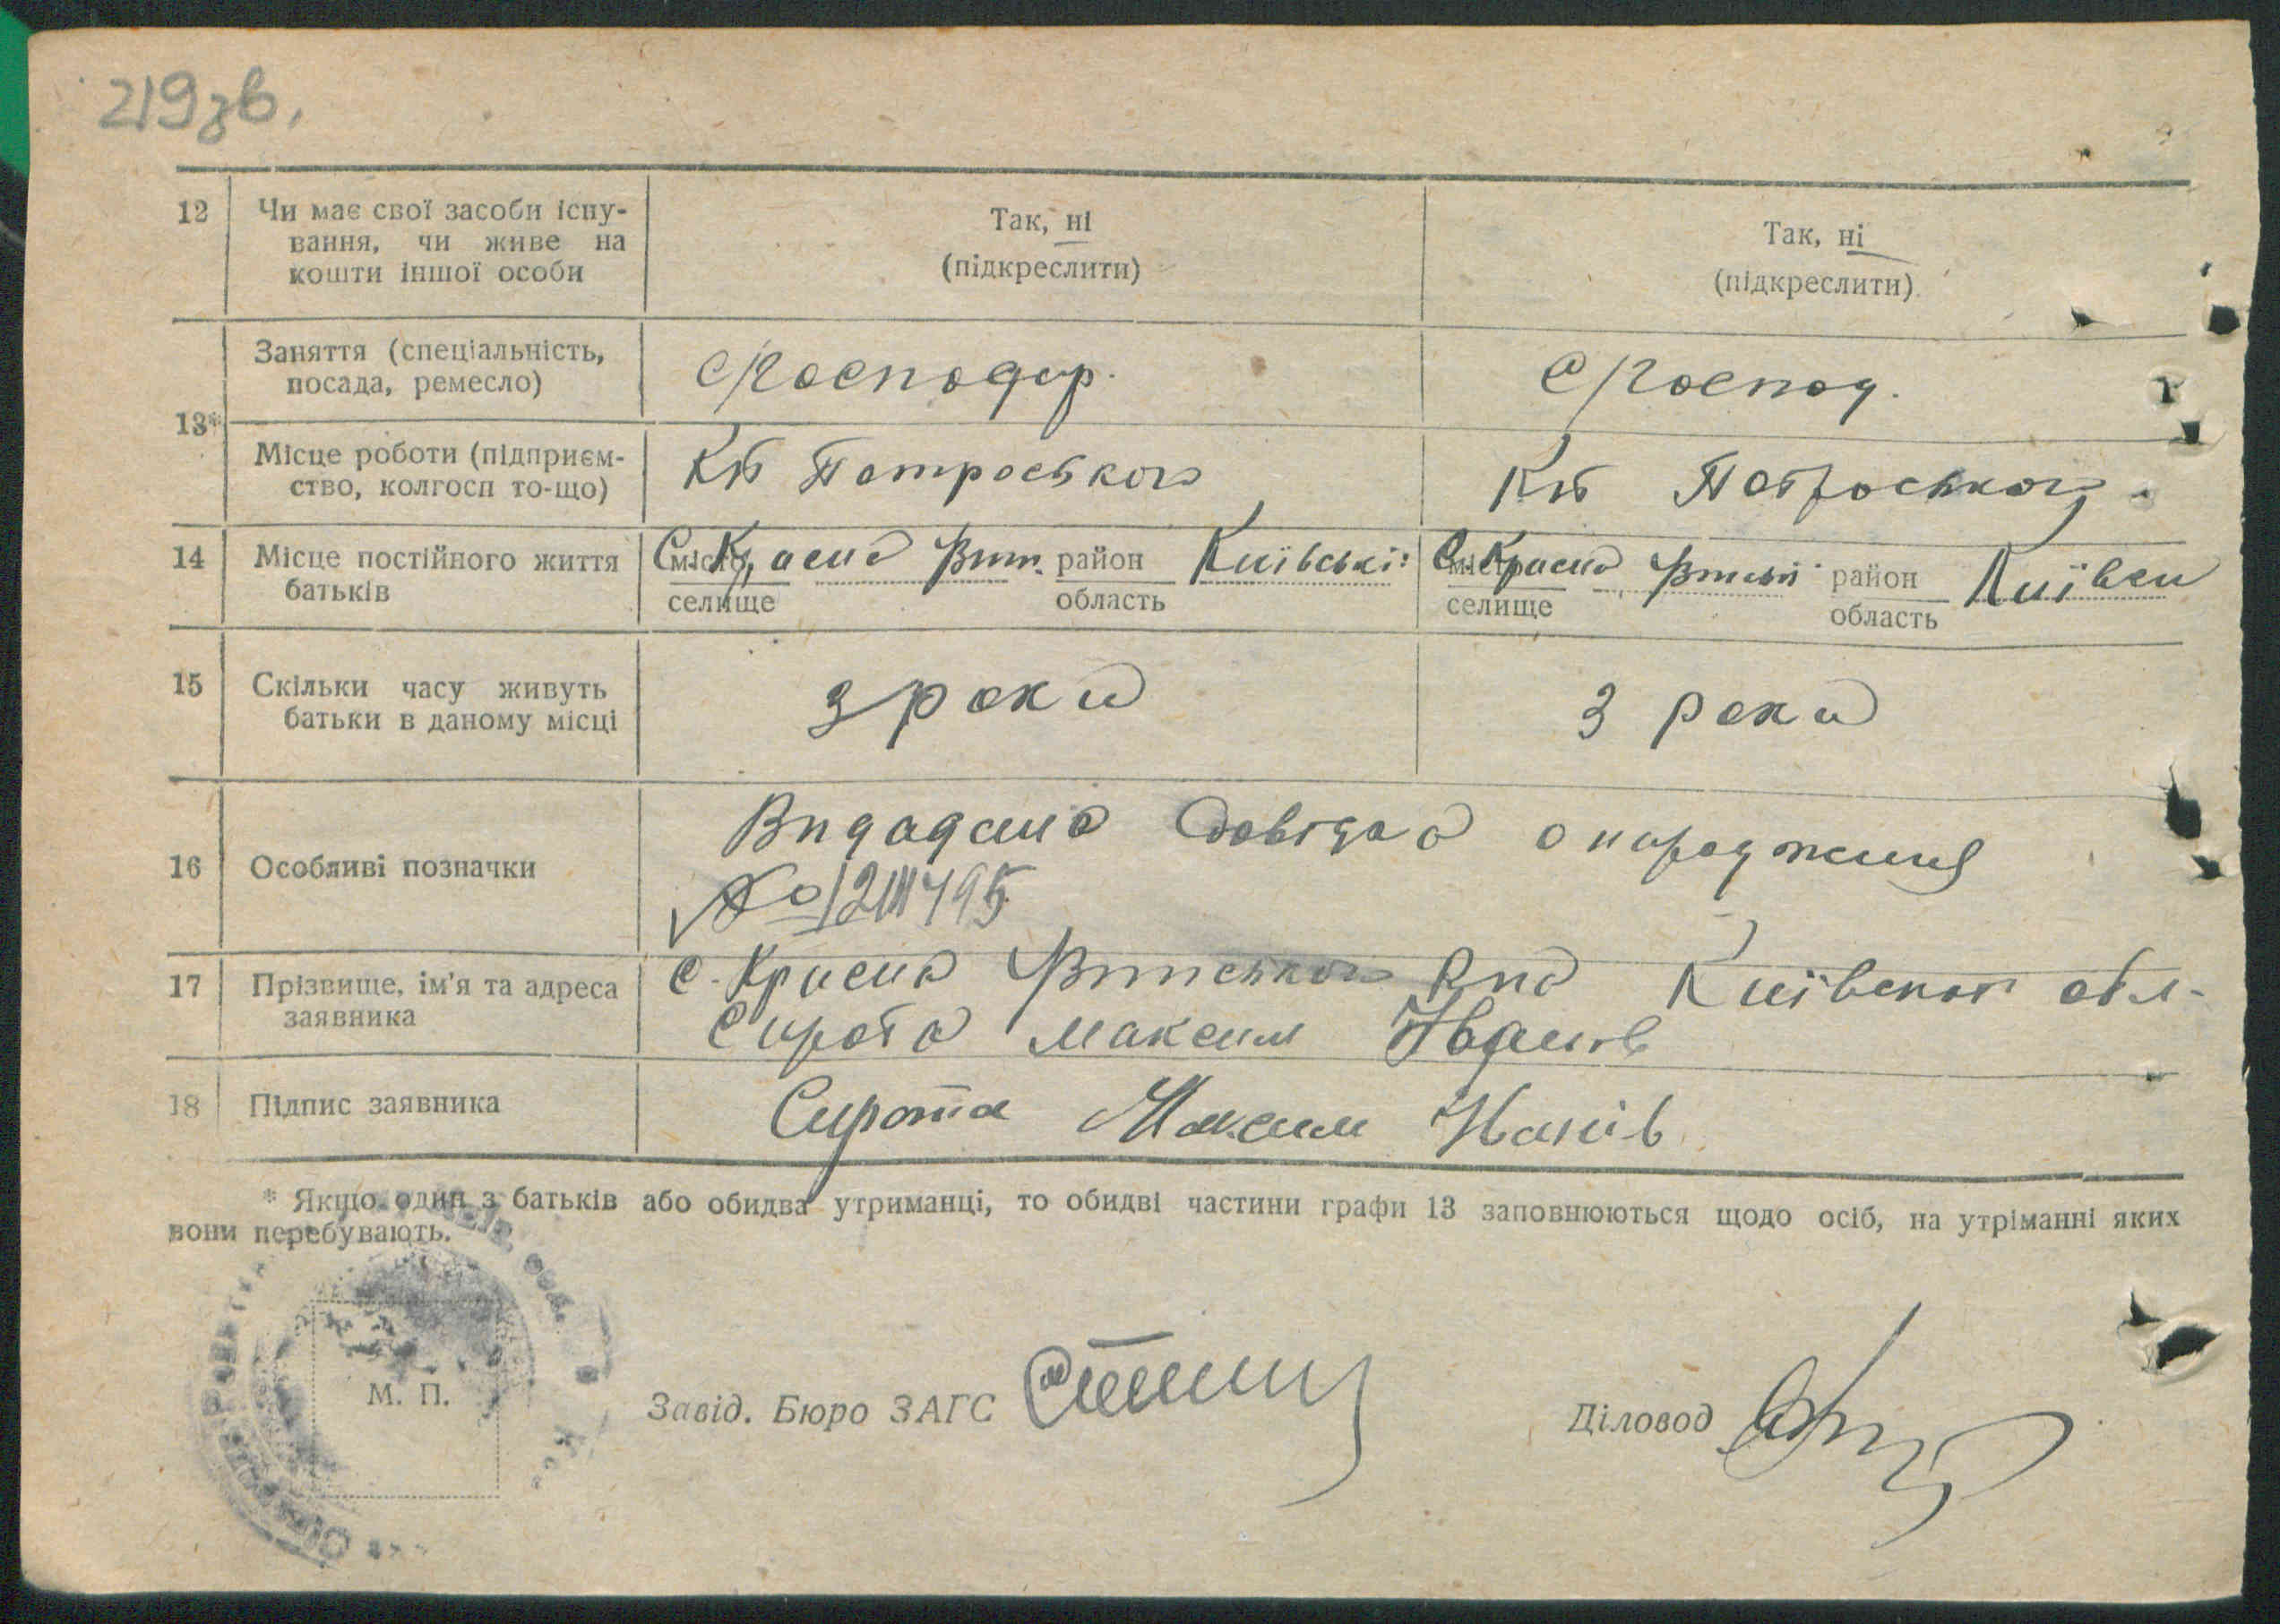 219зв.
12 Чи має свої засоби існу-
вання, чи живе на
кошти іншої особи
Так, ні
(підкреслити)
Так, ні
(підкреслити)
13*
Заняття (спеціальність,
посада, ремесло)
с/господар.
с/господ.
Місце роботи (підприєм-
ство, колгосп то-що)
Кт Петроського
Кт Петроського
14 Місце постійного життя
батьків
С. Красна район Київські
місто
селище
область
С. Красна район Київськ
місто
селище
область
15 Скільки часу живуть
батьки в даному місці
3 роки
3 роки
16 Особливі позначки
Видадана довідка о народження
№
17 Прізвище, ім'я та адреса
заявника
с. Красна Р-на Київської обл.
Сирота Максим Іванов
18 Підпис заявника
Сирота Максим Іванів
* Якщо один з батьків або обидва утриманці, то обидві частини графи 13 заповнюються щодо осіб, на утріманні яких
вони перебувають.
М. П.
Завід. Бюро ЗАГС
Діловод